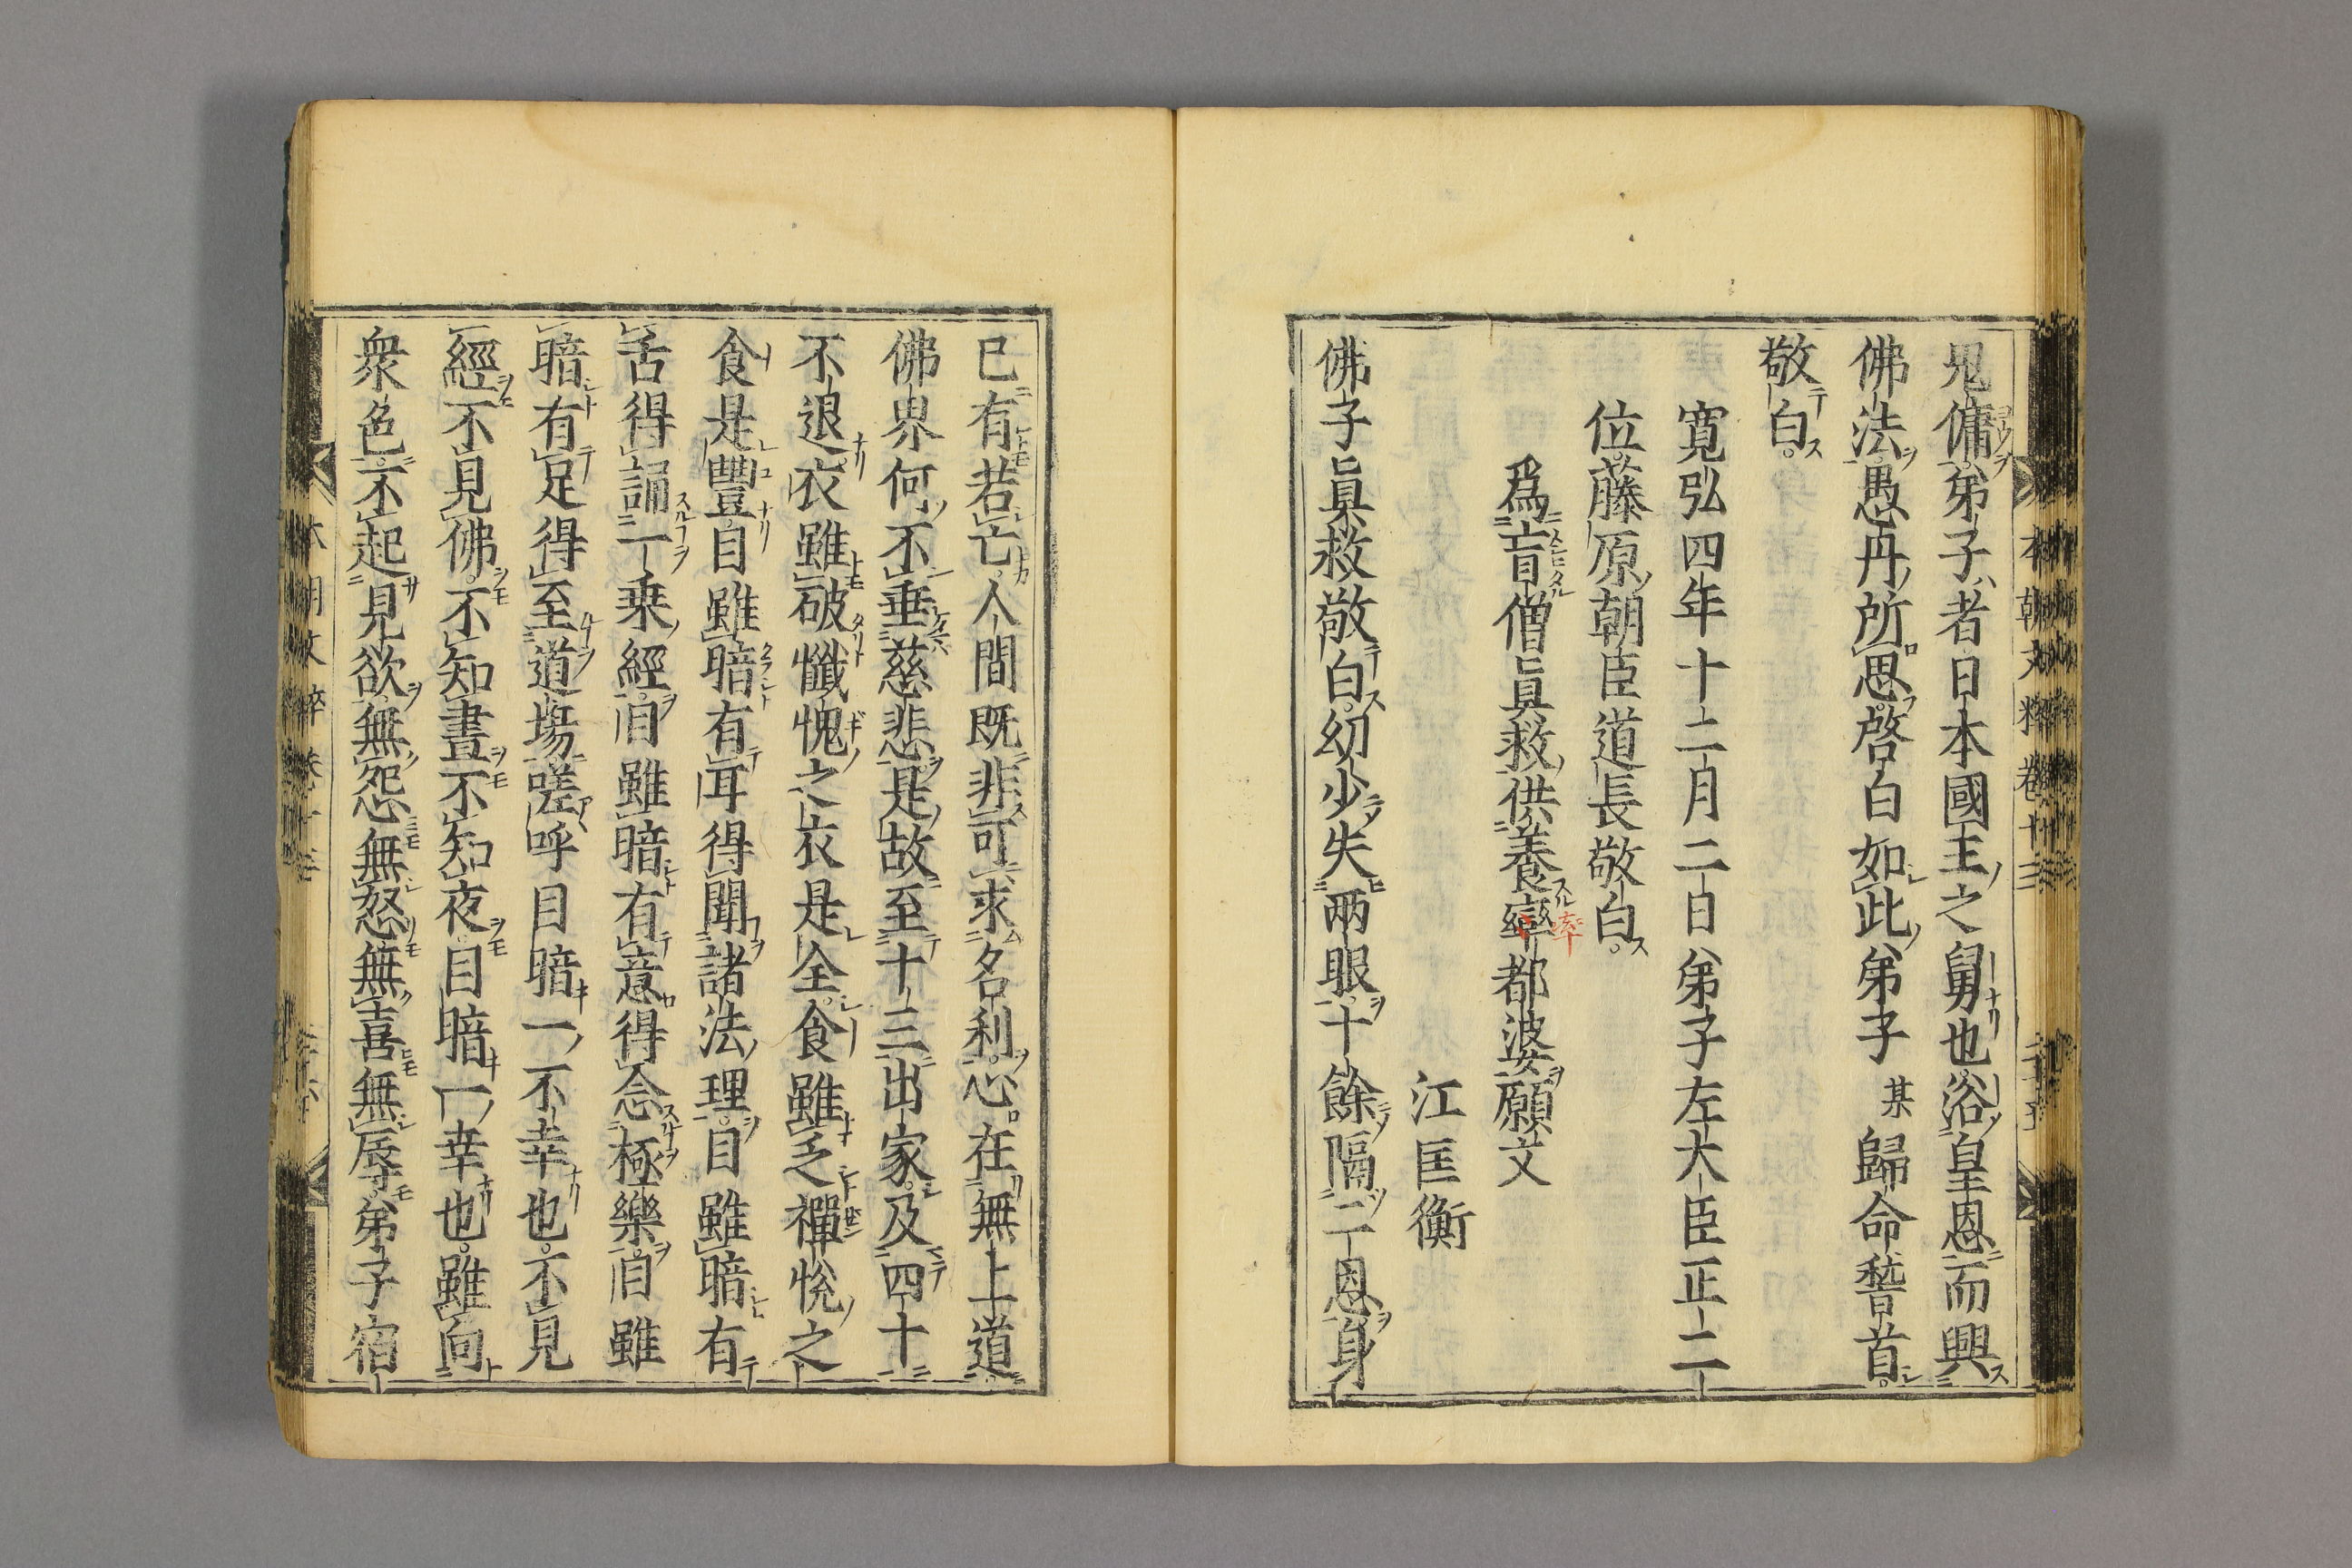 傭弟子者日本國王之舅也浴皇恩而興
佛法愚丹所思啓白如此弟子某歸命稽首
敬白
寛弘四年十二月二日弟子左大臣正二
位藤原朝臣道長敬白
爲盲僧眞救供養率都婆願文
江匡衡
佛子眞救敬白幼少失兩眼十餘隔二恩身
已有若亡人間既非可求名利心在無上道
佛界何不垂慈悲是故至十三出家及四十
不退衣雖破懺愧之衣是全食雖乏禪悅之
食是豐目雖暗有耳得聞諸法理目雖暗有
舌得誦一乗經目雖暗有意得念極樂目雖
暗有足得至道塲嗟呼目暗一不幸也不見
經不見佛不知晝不知夜目暗一幸也雖向
衆色不起見欲無怨無怒無喜無辱弟子宿
本朝文粹卷十三